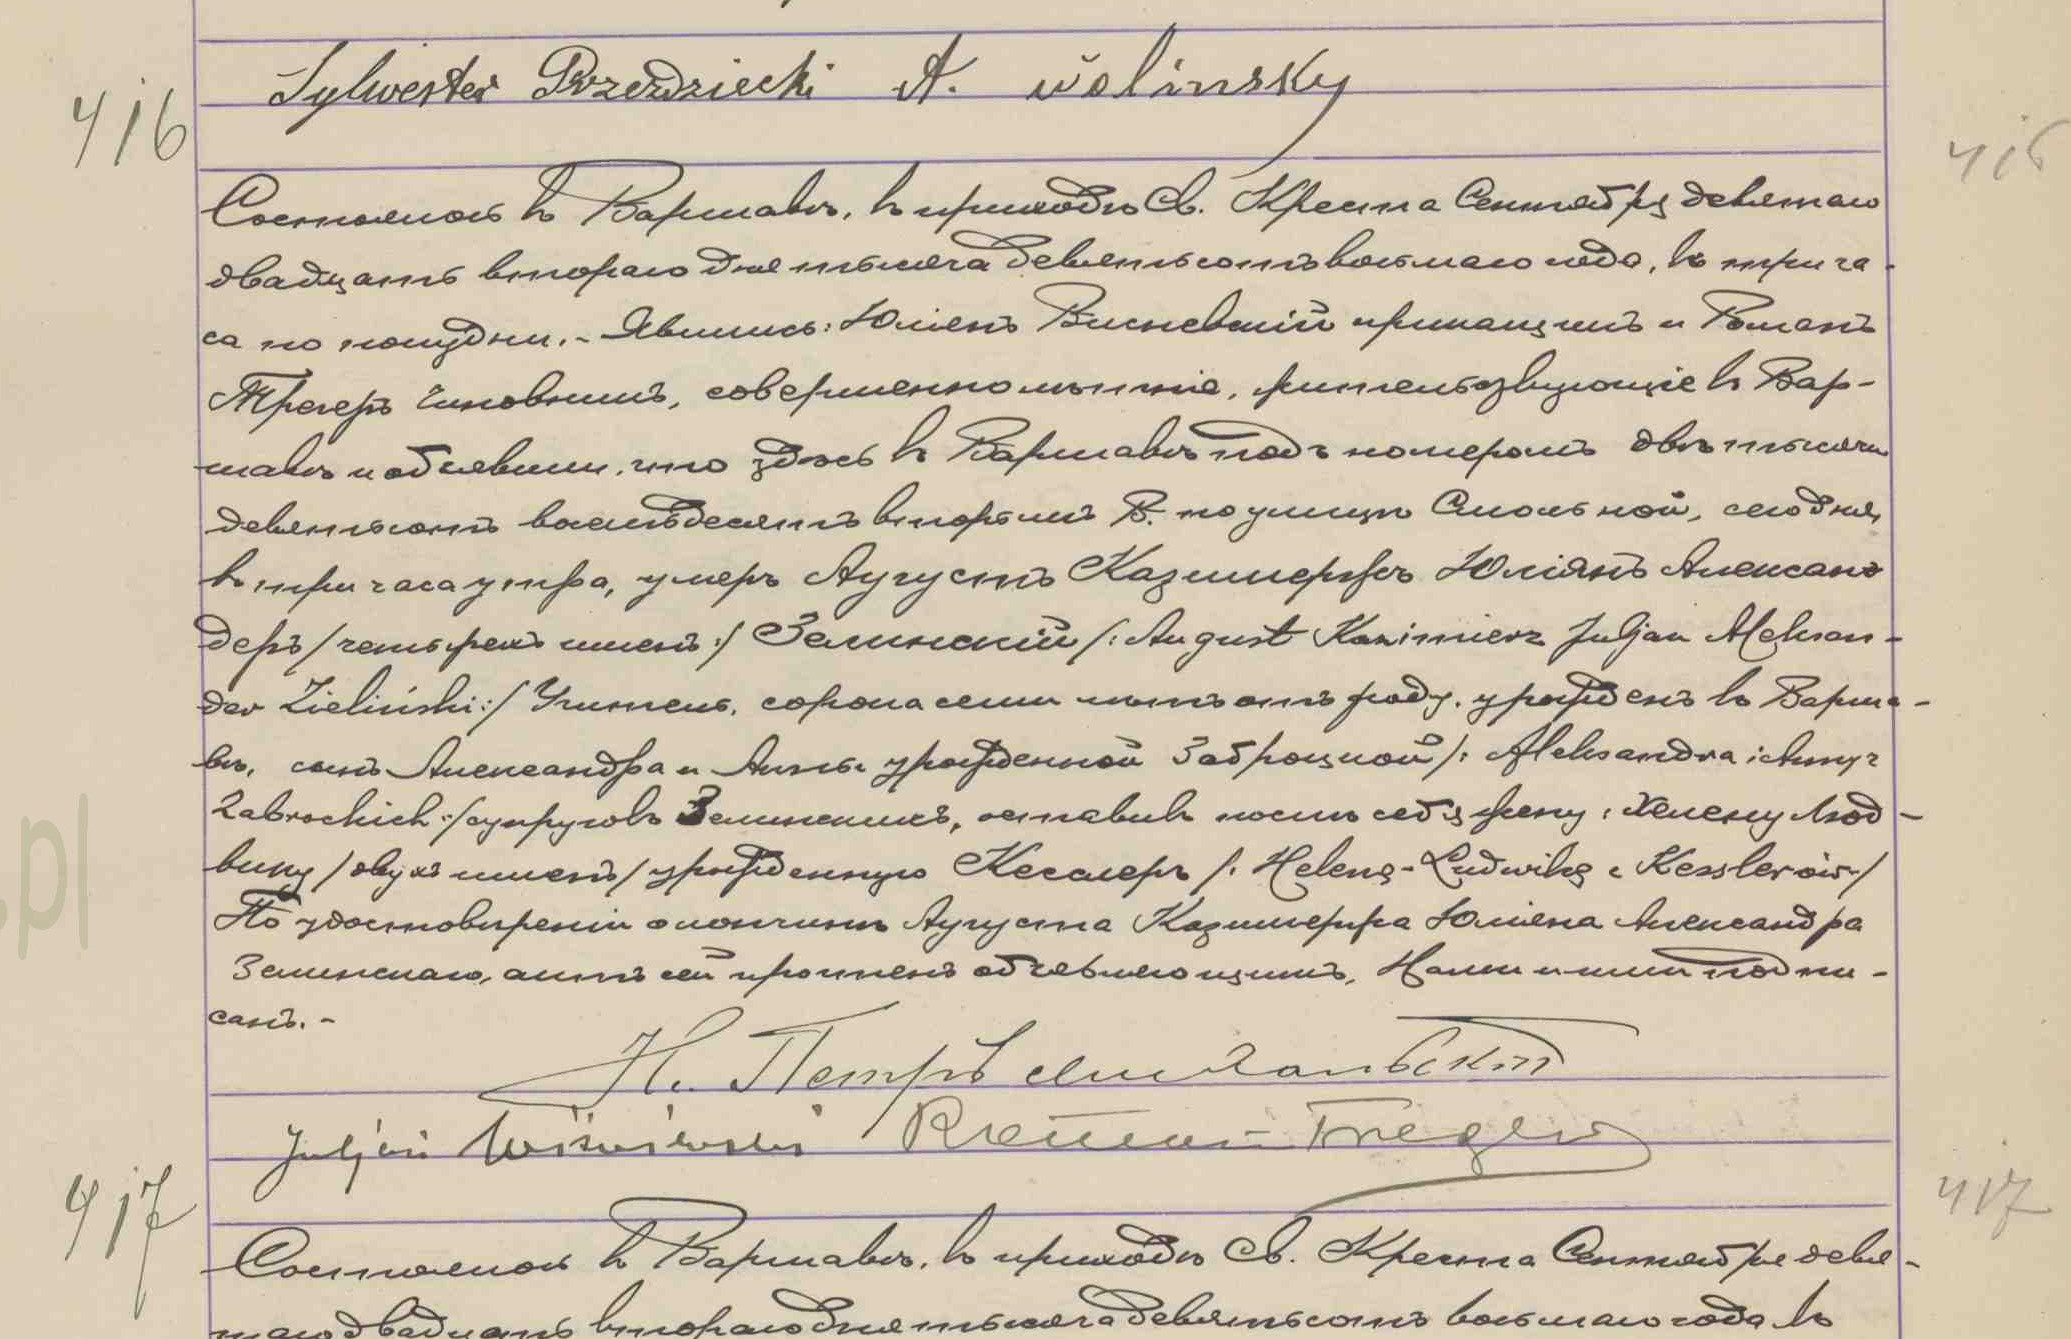 Sylwester Przeździecki A. Wolinsky
416
416
Состоялось въ Варшавѣ, въ приходѣ Св. Креста Сентября девятаго
двадцать втораго дня тысяча девятьсотъ восьмаго года, въ три ча-
са по полудни. - Явились: Юліянъ Висневскій прикащикъ и Романъ
Трегеръ чиновникъ, совершеннолѣтніе, жительствующіе въ Вар-
шавѣ и объявили, что здѣсь въ Варшавѣ подъ номеромъ двѣ тысячи
девятьсотъ восемьдесятъ вторымъ В. по улицѣ Смольной, сегодня,
въ три часа утра, умеръ Аугустъ Казимержъ Юліянъ Алексан
деръ /четырехъ именъ:/ Зелинскій /: August Kazimierz Juljan Aleksan-
der Zieliński:/ Учитель, сорока семи лѣтъ отъ роду, урожденъ въ Варша-
вѣ, сынъ Александра и Анны урожденной Заброцкой /: Aleksandra i Anny z
Zabrockich:/ супруговъ Зелинскихъ, оставивъ послѣ себя жену, Хелену Люд-
вику /двухъ именъ/ урожденную Кесслеръ /: Helenę-Ludwikę z Kesslerów/
По удостовѣреніи о кончинѣ Аугуста Казимержа Юліяна Александра
Зелинскаго, актъ сей прочтенъ объявляющимъ, Нами и ими подпи-
санъ. -
Н. Петръ
Juljan Wiśniewski Roman Treger
417
417
Состоялось въ Варшавѣ, въ приходѣ Св. Креста Сентября девя-
таго двадцать втораго дня тысяча девятьсотъ восьмаго года въ
.pl